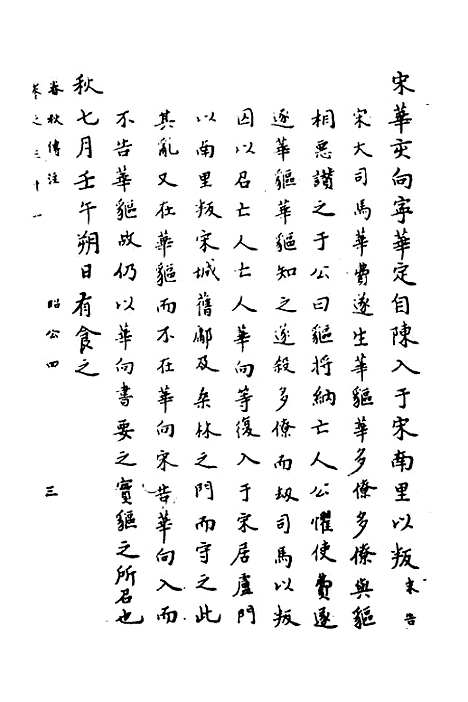 宋華亥向寧華定自陳入于宋南里以叛 来告
宋大司馬華費遂生華貙華多僚多僚與貙
相惡譖之于公曰貙將納亡人公懼使費遂
逐華貙華貙知之遂殺多僚而劫司馬以叛
因以召亡人亡人華向等復入于宋居盧門
以南里叛宋城舊鄘及桑林之門而守之此
其亂又在華貙而不在華向宋告華向入而
不告華貙故仍以華向書要之實貙之所召也
秋七月壬午朔日有食之
春秋傳注 昭公四 三
卷之三十一